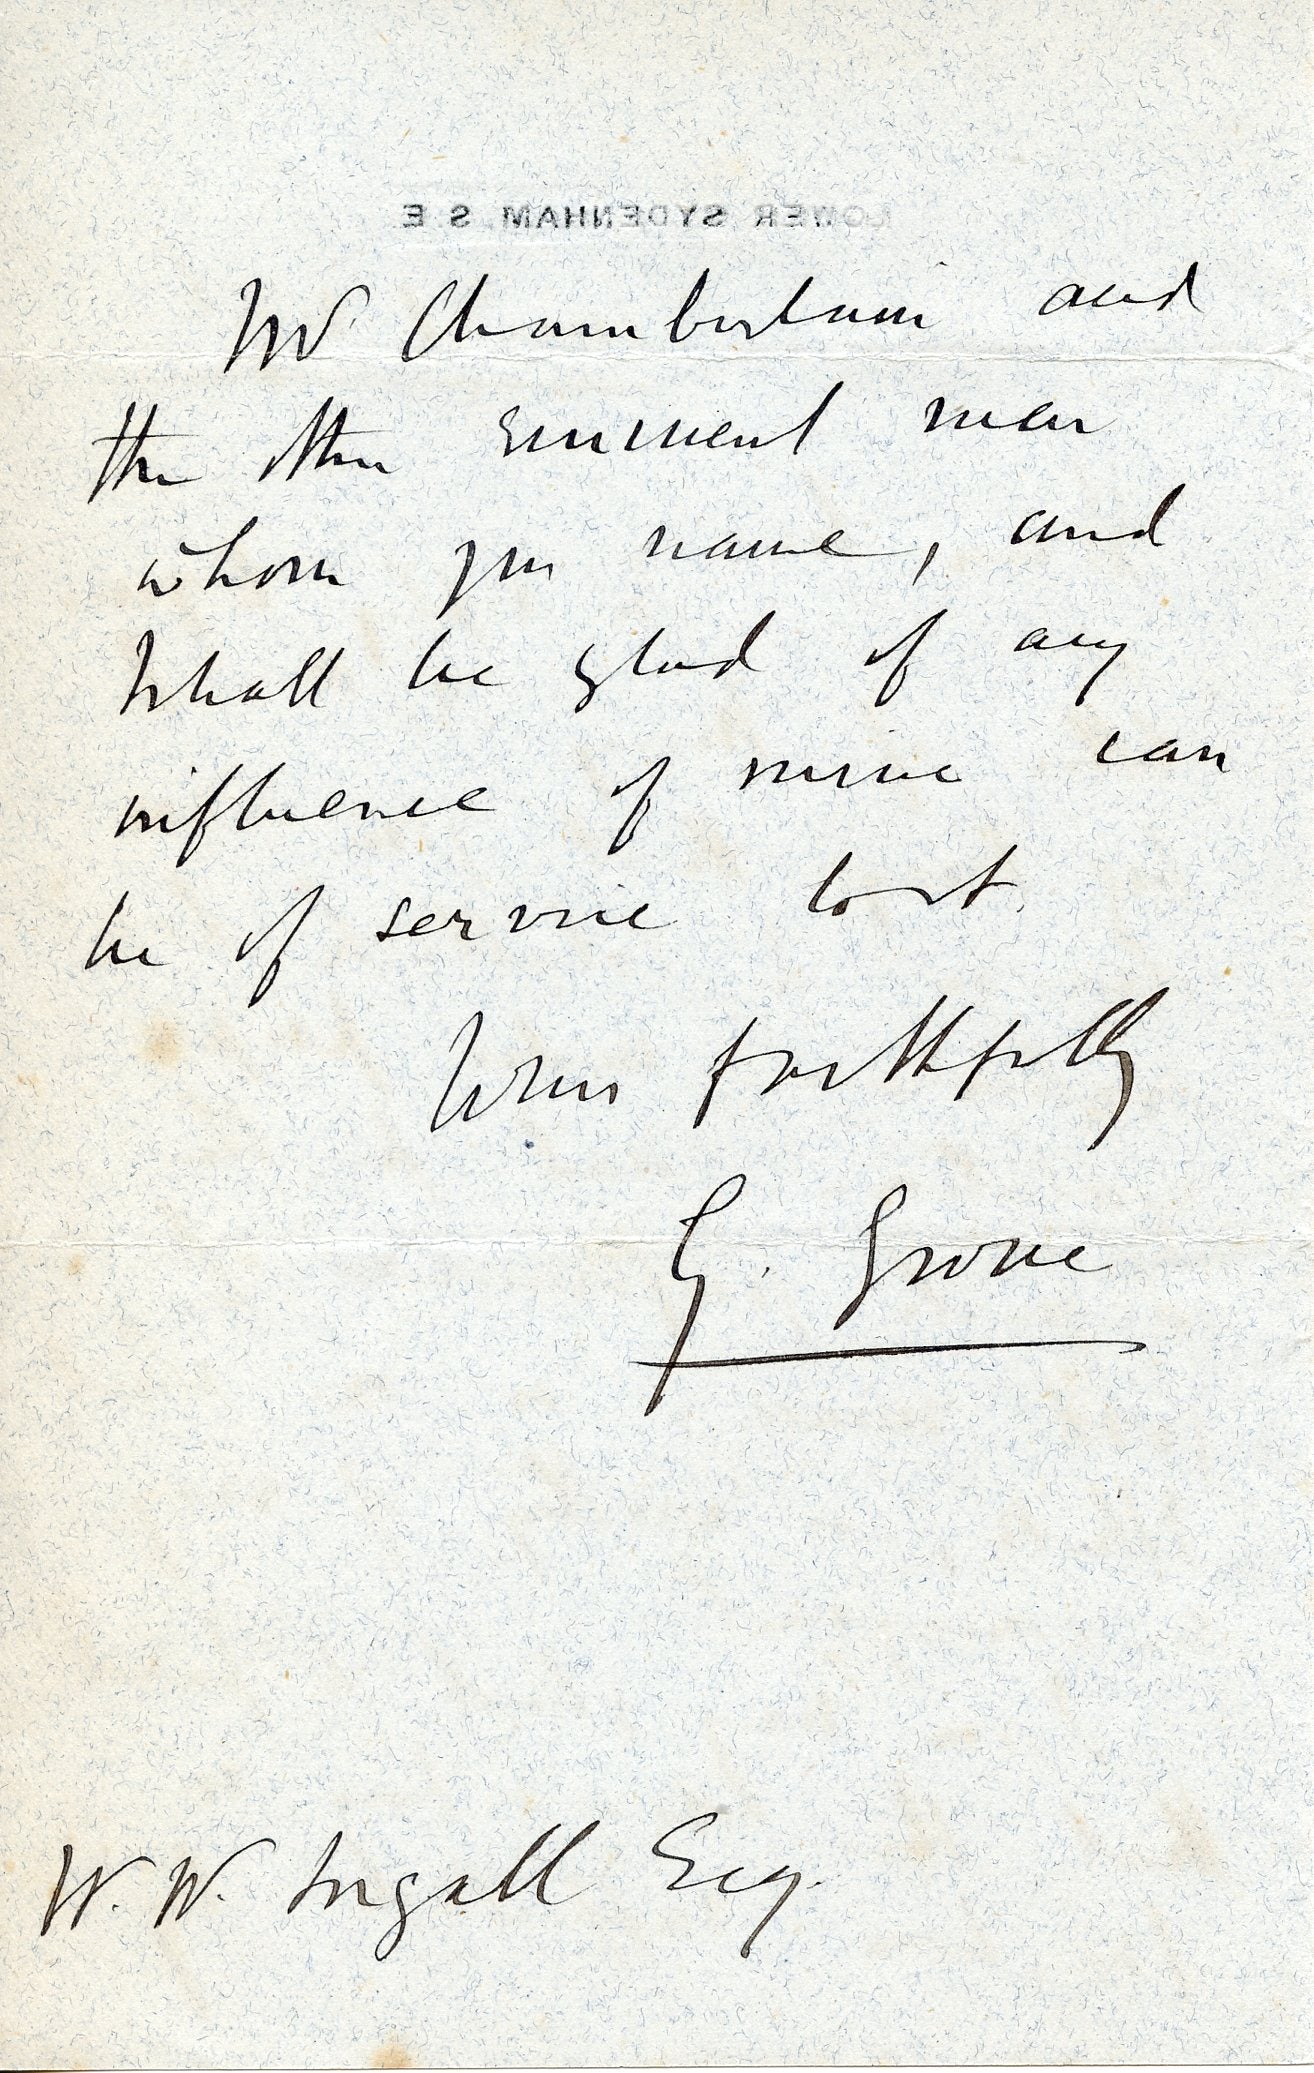 LOWER SYDENHAM, S.E
Mr. Chamberlain and
the other eminent men
whom you name, and
I shall be glad if any
influence of mine can
be of service to it.
Yours faithfully
G. Grove
W. W. Ingall Esq.